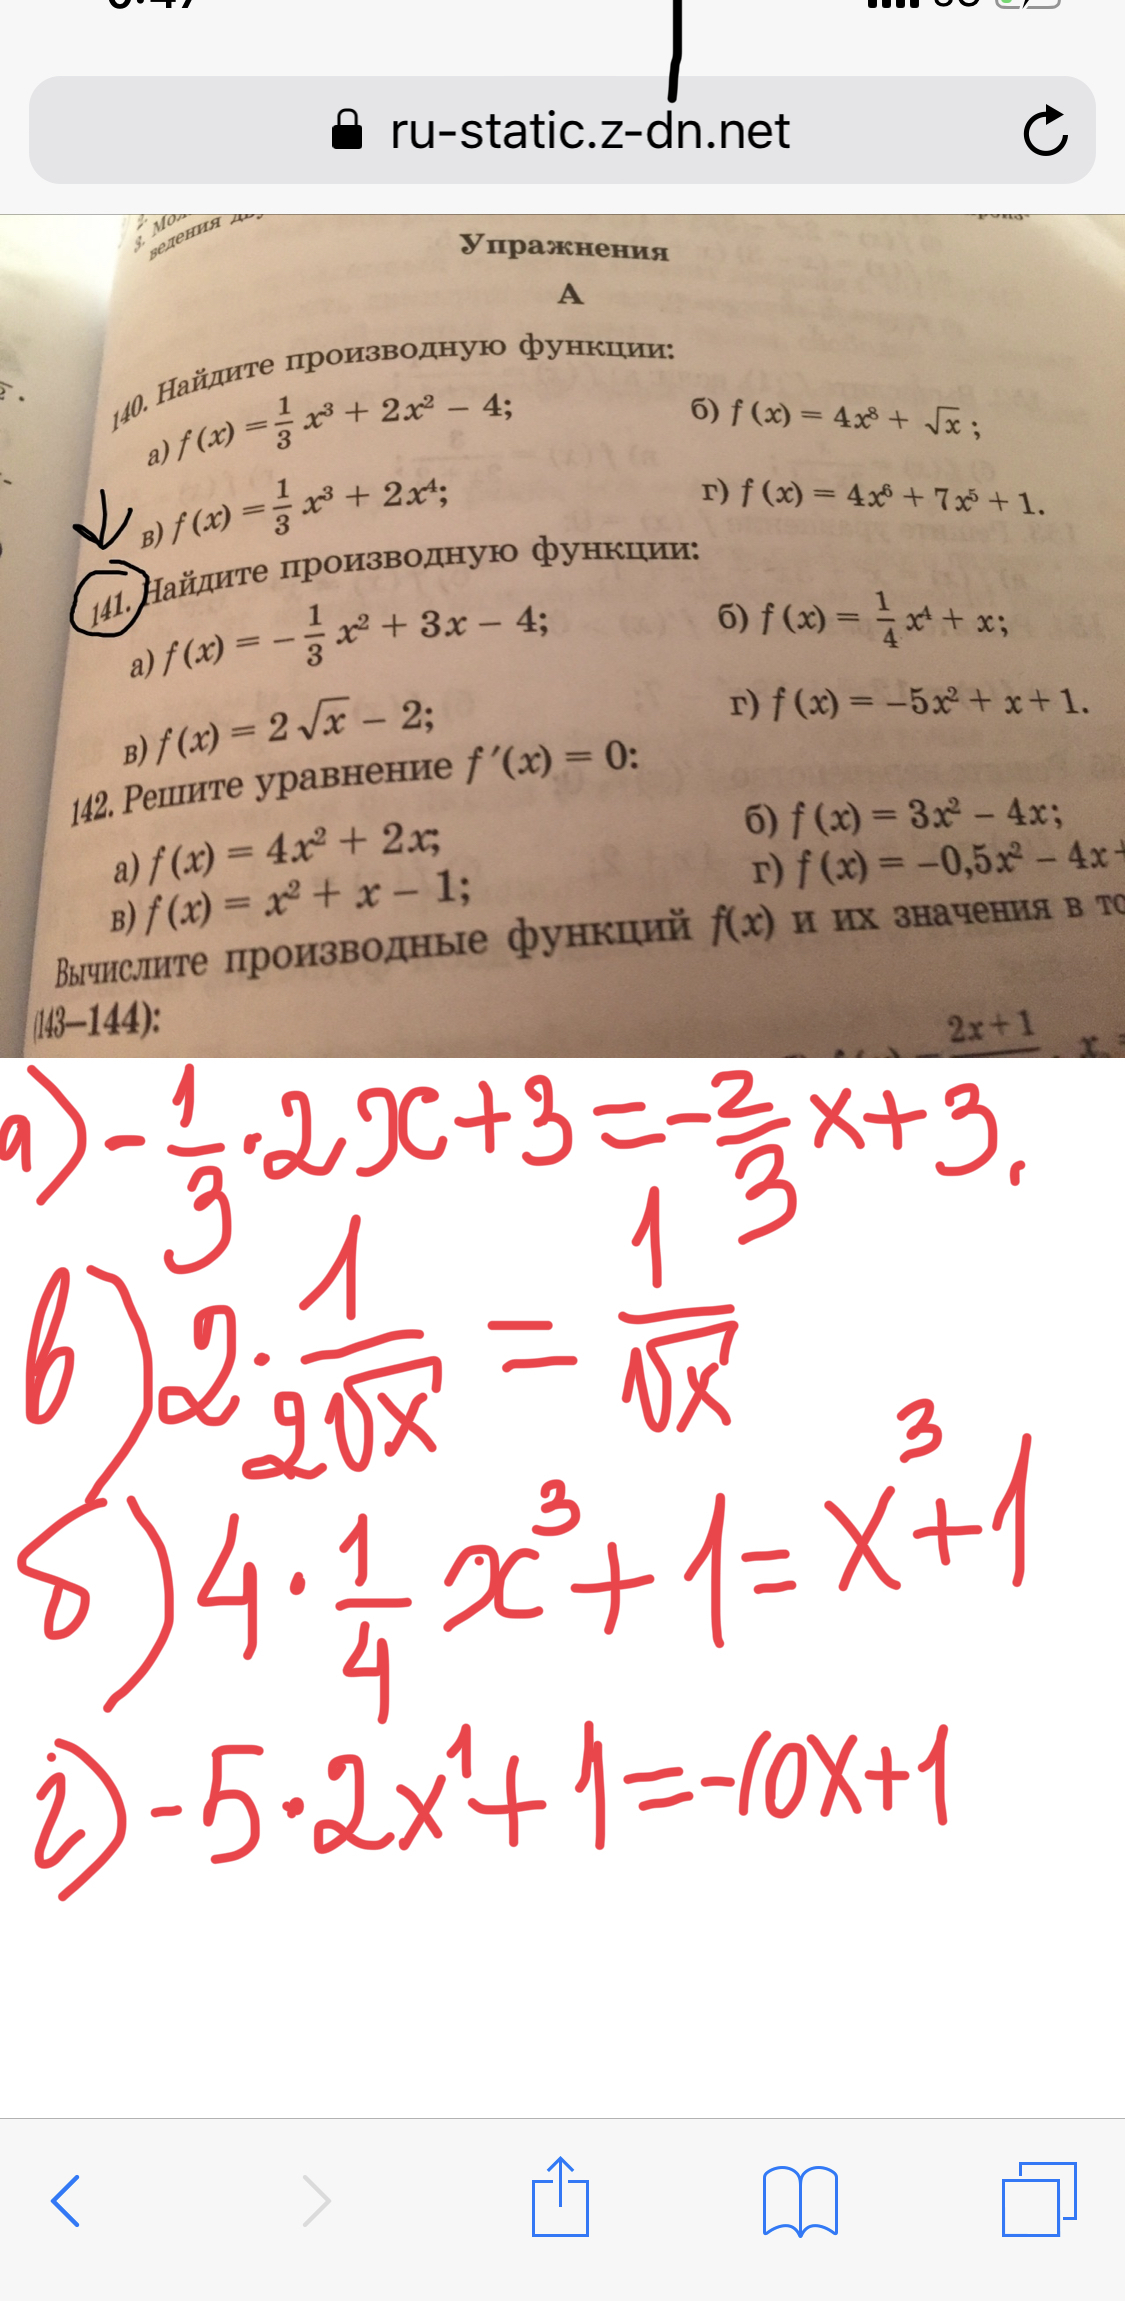 ru-static.z-dn.net
ведения
Упражнения
А
140. Найдите производную функции:
а) f(x) = 1/3 x³ + 2x² – 4; б) f(x) = 4x⁸ + √x;
в) f(x) = 1/3 x³ + 2x⁴; г) f(x) = 4x⁶ + 7x⁵ + 1.
141. Найдите производную функции:
а) f(x) = – 1/3 x² + 3x – 4; б) f(x) = 1/4 x⁴ + x;
в) f(x) = 2√x – 2; г) f(x) = –5x² + x + 1.
142. Решите уравнение f′(x) = 0:
а) f(x) = 4x² + 2x; б) f(x) = 3x² – 4x;
в) f(x) = x² + x – 1; г) f(x) = –0,5x² – 4x +
Вычислите производные функций f(x) и их значения в то
(143–144):
2x + 1
а) - 1/3 · 2x + 3 = - 2/3 x + 3.
в) 2 · 1/2√x = 1/√x
б) 4 · 1/4 x³ + 1 = x³ + 1
г) -5 · 2x¹ + 1 = -10x + 1